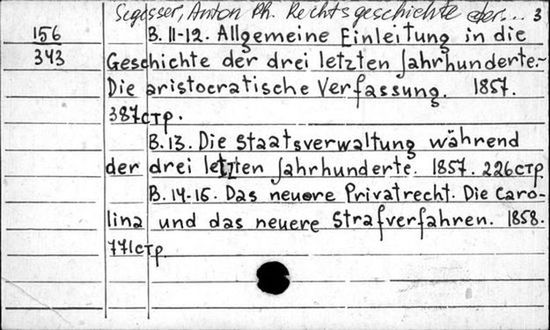 Segesser, Anton Ph. Rechtsgeschichte der... 3
156
343
B. 11-12. Allgemeine Einleitung in die
Geschichte der drei letzten Jahrhunderte.-
Die aristocratische Verfassung. 1857.
387стр.
B. 13. Die Staatsverwaltung während
der drei letzten Jahrhunderte. 1857. 226стр.
B. 14-15. Das neuere Privatrecht. Die Caro-
lina und das neuere Strafverfahren. 1858.
771стр.